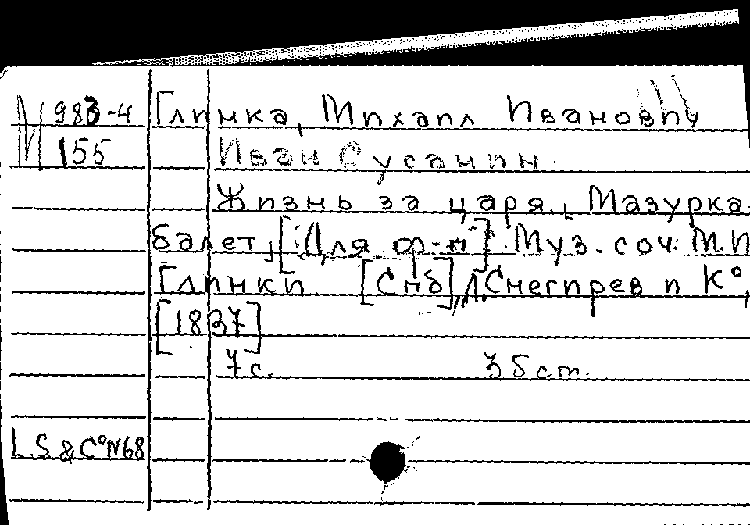 М 983-4 Глинка, Михаил Иванович
155 Иван Сусанин.
Жизнь за царя, Мазурка.
балет, [Для ф-п] Муз. соч. М.И
Глинки [Спб], Л. Снегирев и К°,
[1837]
7 с. 35 см.
L. S & C° N 68